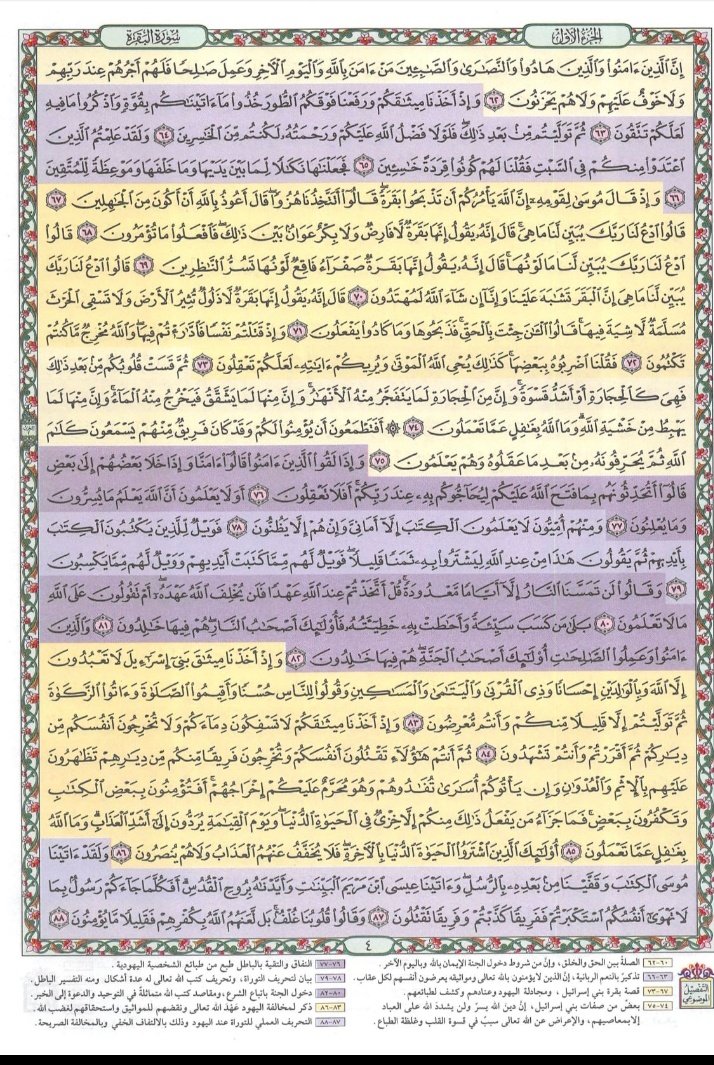 الجزء الأول
سورة البقرة
إِنَّ الَّذِينَ ءَامَنُوا وَالَّذِينَ هَادُوا وَالنَّصَارَىٰ وَالصَّابِئِينَ مَنْ ءَامَنَ بِاللَّهِ وَالْيَوْمِ الْآخِرِ وَعَمِلَ صَالِحًا فَلَهُمْ أَجْرُهُمْ عِندَ رَبِّهِمْ
وَلَا خَوْفٌ عَلَيْهِمْ وَلَا هُمْ يَحْزَنُونَ ٦٢ وَإِذْ أَخَذْنَا مِيثَاقَكُمْ وَرَفَعْنَا فَوْقَكُمُ الطُّورَ خُذُوا مَا ءَاتَيْنَاكُم بِقُوَّةٍ وَاذْكُرُوا مَا فِيهِ
لَعَلَّكُمْ تَتَّقُونَ ٦٣ ثُمَّ تَوَلَّيْتُم مِّنۢ بَعْدِ ذَٰلِكَ فَلَوْلَا فَضْلُ اللَّهِ عَلَيْكُمْ وَرَحْمَتُهُۥ لَكُنتُم مِّنَ الْخَاسِرِينَ ٦٤ وَلَقَدْ عَلِمْتُمُ الَّذِينَ
اعْتَدَوْا مِنكُمْ فِي السَّبْتِ فَقُلْنَا لَهُمْ كُونُوا قِرَدَةً خَاسِئِينَ ٦٥ فَجَعَلْنَاهَا نَكَالًا لِّمَا بَيْنَ يَدَيْهَا وَمَا خَلْفَهَا وَمَوْعِظَةً لِّلْمُتَّقِينَ
٦٦ وَإِذْ قَالَ مُوسَىٰ لِقَوْمِهِۦ إِنَّ اللَّهَ يَأْمُرُكُمْ أَن تَذْبَحُوا بَقَرَةً قَالُوا أَتَتَّخِذُنَا هُزُوًا قَالَ أَعُوذُ بِاللَّهِ أَنْ أَكُونَ مِنَ الْجَاهِلِينَ ٦٧
قَالُوا ادْعُ لَنَا رَبَّكَ يُبَيِّن لَّنَا مَا هِيَ قَالَ إِنَّهُۥ يَقُولُ إِنَّهَا بَقَرَةٌ لَّا فَارِضٌ وَلَا بِكْرٌ عَوَانٌۢ بَيْنَ ذَٰلِكَ فَافْعَلُوا مَا تُؤْمَرُونَ ٦٨ قَالُوا
ادْعُ لَنَا رَبَّكَ يُبَيِّن لَّنَا مَا لَوْنُهَا قَالَ إِنَّهُۥ يَقُولُ إِنَّهَا بَقَرَةٌ صَفْرَاءُ فَاقِعٌ لَّوْنُهَا تَسُرُّ النَّاظِرِينَ ٦٩ قَالُوا ادْعُ لَنَا رَبَّكَ
يُبَيِّن لَّنَا مَا هِيَ إِنَّ الْبَقَرَ تَشَابَهَ عَلَيْنَا وَإِنَّا إِن شَاءَ اللَّهُ لَمُهْتَدُونَ ٧٠ قَالَ إِنَّهُۥ يَقُولُ إِنَّهَا بَقَرَةٌ لَّا ذَلُولٌ تُثِيرُ الْأَرْضَ وَلَا تَسْقِي الْحَرْثَ
مُسَلَّمَةٌ لَّا شِيَةَ فِيهَا قَالُوا الْآنَ جِئْتَ بِالْحَقِّ فَذَبَحُوهَا وَمَا كَادُوا يَفْعَلُونَ ٧١ وَإِذْ قَتَلْتُمْ نَفْسًا فَادَّارَأْتُمْ فِيهَا وَاللَّهُ مُخْرِجٌ مَّا كُنتُمْ
تَكْتُمُونَ ٧٢ فَقُلْنَا اضْرِبُوهُ بِبَعْضِهَا كَذَٰلِكَ يُحْيِ اللَّهُ الْمَوْتَىٰ وَيُرِيكُمْ ءَايَاتِهِۦ لَعَلَّكُمْ تَعْقِلُونَ ٧٣ ثُمَّ قَسَتْ قُلُوبُكُم مِّنۢ بَعْدِ ذَٰلِكَ
فَهِيَ كَالْحِجَارَةِ أَوْ أَشَدُّ قَسْوَةً وَإِنَّ مِنَ الْحِجَارَةِ لَمَا يَتَفَجَّرُ مِنْهُ الْأَنْهَارُ وَإِنَّ مِنْهَا لَمَا يَشَّقَّقُ فَيَخْرُجُ مِنْهُ الْمَاءُ وَإِنَّ مِنْهَا لَمَا
يَهْبِطُ مِنْ خَشْيَةِ اللَّهِ وَمَا اللَّهُ بِغَافِلٍ عَمَّا تَعْمَلُونَ ٧٤ ۞ أَفَتَطْمَعُونَ أَن يُؤْمِنُوا لَكُمْ وَقَدْ كَانَ فَرِيقٌ مِّنْهُمْ يَسْمَعُونَ كَلَامَ
اللَّهِ ثُمَّ يُحَرِّفُونَهُۥ مِنۢ بَعْدِ مَا عَقَلُوهُ وَهُمْ يَعْلَمُونَ ٧٥ وَإِذَا لَقُوا الَّذِينَ ءَامَنُوا قَالُوا ءَامَنَّا وَإِذَا خَلَا بَعْضُهُمْ إِلَىٰ بَعْضٍ
قَالُوا أَتُحَدِّثُونَهُم بِمَا فَتَحَ اللَّهُ عَلَيْكُمْ لِيُحَاجُّوكُم بِهِۦ عِندَ رَبِّكُمْ أَفَلَا تَعْقِلُونَ ٧٦ أَوَلَا يَعْلَمُونَ أَنَّ اللَّهَ يَعْلَمُ مَا يُسِرُّونَ
وَمَا يُعْلِنُونَ ٧٧ وَمِنْهُمْ أُمِّيُّونَ لَا يَعْلَمُونَ الْكِتَابَ إِلَّا أَمَانِيَّ وَإِنْ هُمْ إِلَّا يَظُنُّونَ ٧٨ فَوَيْلٌ لِّلَّذِينَ يَكْتُبُونَ الْكِتَابَ
بِأَيْدِيهِمْ ثُمَّ يَقُولُونَ هَٰذَا مِنْ عِندِ اللَّهِ لِيَشْتَرُوا بِهِۦ ثَمَنًا قَلِيلًا فَوَيْلٌ لَّهُم مِّمَّا كَتَبَتْ أَيْدِيهِمْ وَوَيْلٌ لَّهُم مِّمَّا يَكْسِبُونَ
٧٩ وَقَالُوا لَن تَمَسَّنَا النَّارُ إِلَّا أَيَّامًا مَّعْدُودَةً قُلْ أَتَّخَذْتُمْ عِندَ اللَّهِ عَهْدًا فَلَن يُخْلِفَ اللَّهُ عَهْدَهُۥ أَمْ تَقُولُونَ عَلَى اللَّهِ
مَا لَا تَعْلَمُونَ ٨٠ بَلَىٰ مَن كَسَبَ سَيِّئَةً وَأَحَاطَتْ بِهِۦ خَطِيئَتُهُۥ فَأُولَٰئِكَ أَصْحَابُ النَّارِ هُمْ فِيهَا خَالِدُونَ ٨١ وَالَّذِينَ
ءَامَنُوا وَعَمِلُوا الصَّالِحَاتِ أُولَٰئِكَ أَصْحَابُ الْجَنَّةِ هُمْ فِيهَا خَالِدُونَ ٨٢ وَإِذْ أَخَذْنَا مِيثَاقَ بَنِي إِسْرَائِيلَ لَا تَعْبُدُونَ
إِلَّا اللَّهَ وَبِالْوَالِدَيْنِ إِحْسَانًا وَذِي الْقُرْبَىٰ وَالْيَتَامَىٰ وَالْمَسَاكِينِ وَقُولُوا لِلنَّاسِ حُسْنًا وَأَقِيمُوا الصَّلَوٰةَ وَءَاتُوا الزَّكَوٰةَ
ثُمَّ تَوَلَّيْتُمْ إِلَّا قَلِيلًا مِّنكُمْ وَأَنتُم مُّعْرِضُونَ ٨٣ وَإِذْ أَخَذْنَا مِيثَاقَكُمْ لَا تَسْفِكُونَ دِمَاءَكُمْ وَلَا تُخْرِجُونَ أَنفُسَكُم مِّن
دِيَارِكُمْ ثُمَّ أَقْرَرْتُمْ وَأَنتُمْ تَشْهَدُونَ ٨٤ ثُمَّ أَنتُمْ هَٰؤُلَاءِ تَقْتُلُونَ أَنفُسَكُمْ وَتُخْرِجُونَ فَرِيقًا مِّنكُم مِّن دِيَارِهِمْ تَظَاهَرُونَ
عَلَيْهِم بِالْإِثْمِ وَالْعُدْوَانِ وَإِن يَأْتُوكُمْ أُسَارَىٰ تُفَادُوهُمْ وَهُوَ مُحَرَّمٌ عَلَيْكُمْ إِخْرَاجُهُمْ أَفَتُؤْمِنُونَ بِبَعْضِ الْكِتَابِ
وَتَكْفُرُونَ بِبَعْضٍ فَمَا جَزَاءُ مَن يَفْعَلُ ذَٰلِكَ مِنكُمْ إِلَّا خِزْيٌ فِي الْحَيَوٰةِ الدُّنْيَا وَيَوْمَ الْقِيَامَةِ يُرَدُّونَ إِلَىٰ أَشَدِّ الْعَذَابِ وَمَا اللَّهُ
بِغَافِلٍ عَمَّا تَعْمَلُونَ ٨٥ أُولَٰئِكَ الَّذِينَ اشْتَرَوُا الْحَيَوٰةَ الدُّنْيَا بِالْآخِرَةِ فَلَا يُخَفَّفُ عَنْهُمُ الْعَذَابُ وَلَا هُمْ يُنصَرُونَ ٨٦ وَلَقَدْ ءَاتَيْنَا
مُوسَى الْكِتَابَ وَقَفَّيْنَا مِنۢ بَعْدِهِۦ بِالرُّسُلِ وَءَاتَيْنَا عِيسَى ابْنَ مَرْيَمَ الْبَيِّنَاتِ وَأَيَّدْنَاهُ بِرُوحِ الْقُدُسِ أَفَكُلَّمَا جَاءَكُمْ رَسُولٌۢ بِمَا
لَا تَهْوَىٰ أَنفُسُكُمُ اسْتَكْبَرْتُمْ فَفَرِيقًا كَذَّبْتُمْ وَفَرِيقًا تَقْتُلُونَ ٨٧ وَقَالُوا قُلُوبُنَا غُلْفٌۢ بَل لَّعَنَهُمُ اللَّهُ بِكُفْرِهِمْ فَقَلِيلًا مَّا يُؤْمِنُونَ ٨٨
٤
التفصيل الموضوعي
٦٠-٦٢ الصلة بين الحق والخلق، وإنّ من شروط دخول الجنة الإيمان بالله وباليوم الآخر.
٦٣-٦٦ تذكيرٌ بالنعم الربانية، إنّ الذين لا يؤمنون بالله تعالى ومواثيقه يعرضون أنفسهم لكل عقاب.
٦٧-٧٣ قصة بقرة بني إسرائيل، ومجادلة اليهود وعنادهم وكشف لطبائعهم.
٧٤-٧٥ بعضٌ من صفات بني إسرائيل، إنّ دين الله يسرٌ ولن يشدد الله على العباد
إلا بمعاصيهم، والإعراض عن الله تعالى سببٌ في قسوة القلب وغلظة الطباع.
٧٦-٧٧ النفاق والتقية بالباطل طبع من طبائع الشخصية اليهودية.
٧٨-٧٩ بيان لتحريف التوراة، وتحريف كتب الله تعالى له عدة أشكال ومنه التفسير الباطل.
٨٠-٨٢ دخول الجنة باتباع الشرع، ومقاصد كتب الله متماثلةٌ في التوحيد والدعوة إلى الخير.
٨٣-٨٦ ذكر لمخالفة اليهود عهْدَ الله تعالى ونقضهم للمواثيق واستحقاقهم لغضب الله.
٨٧-٨٨ التحريف العملي للتوراة عند اليهود وذلك بالالتفاف الخفي وبالمخالفة الصريحة.